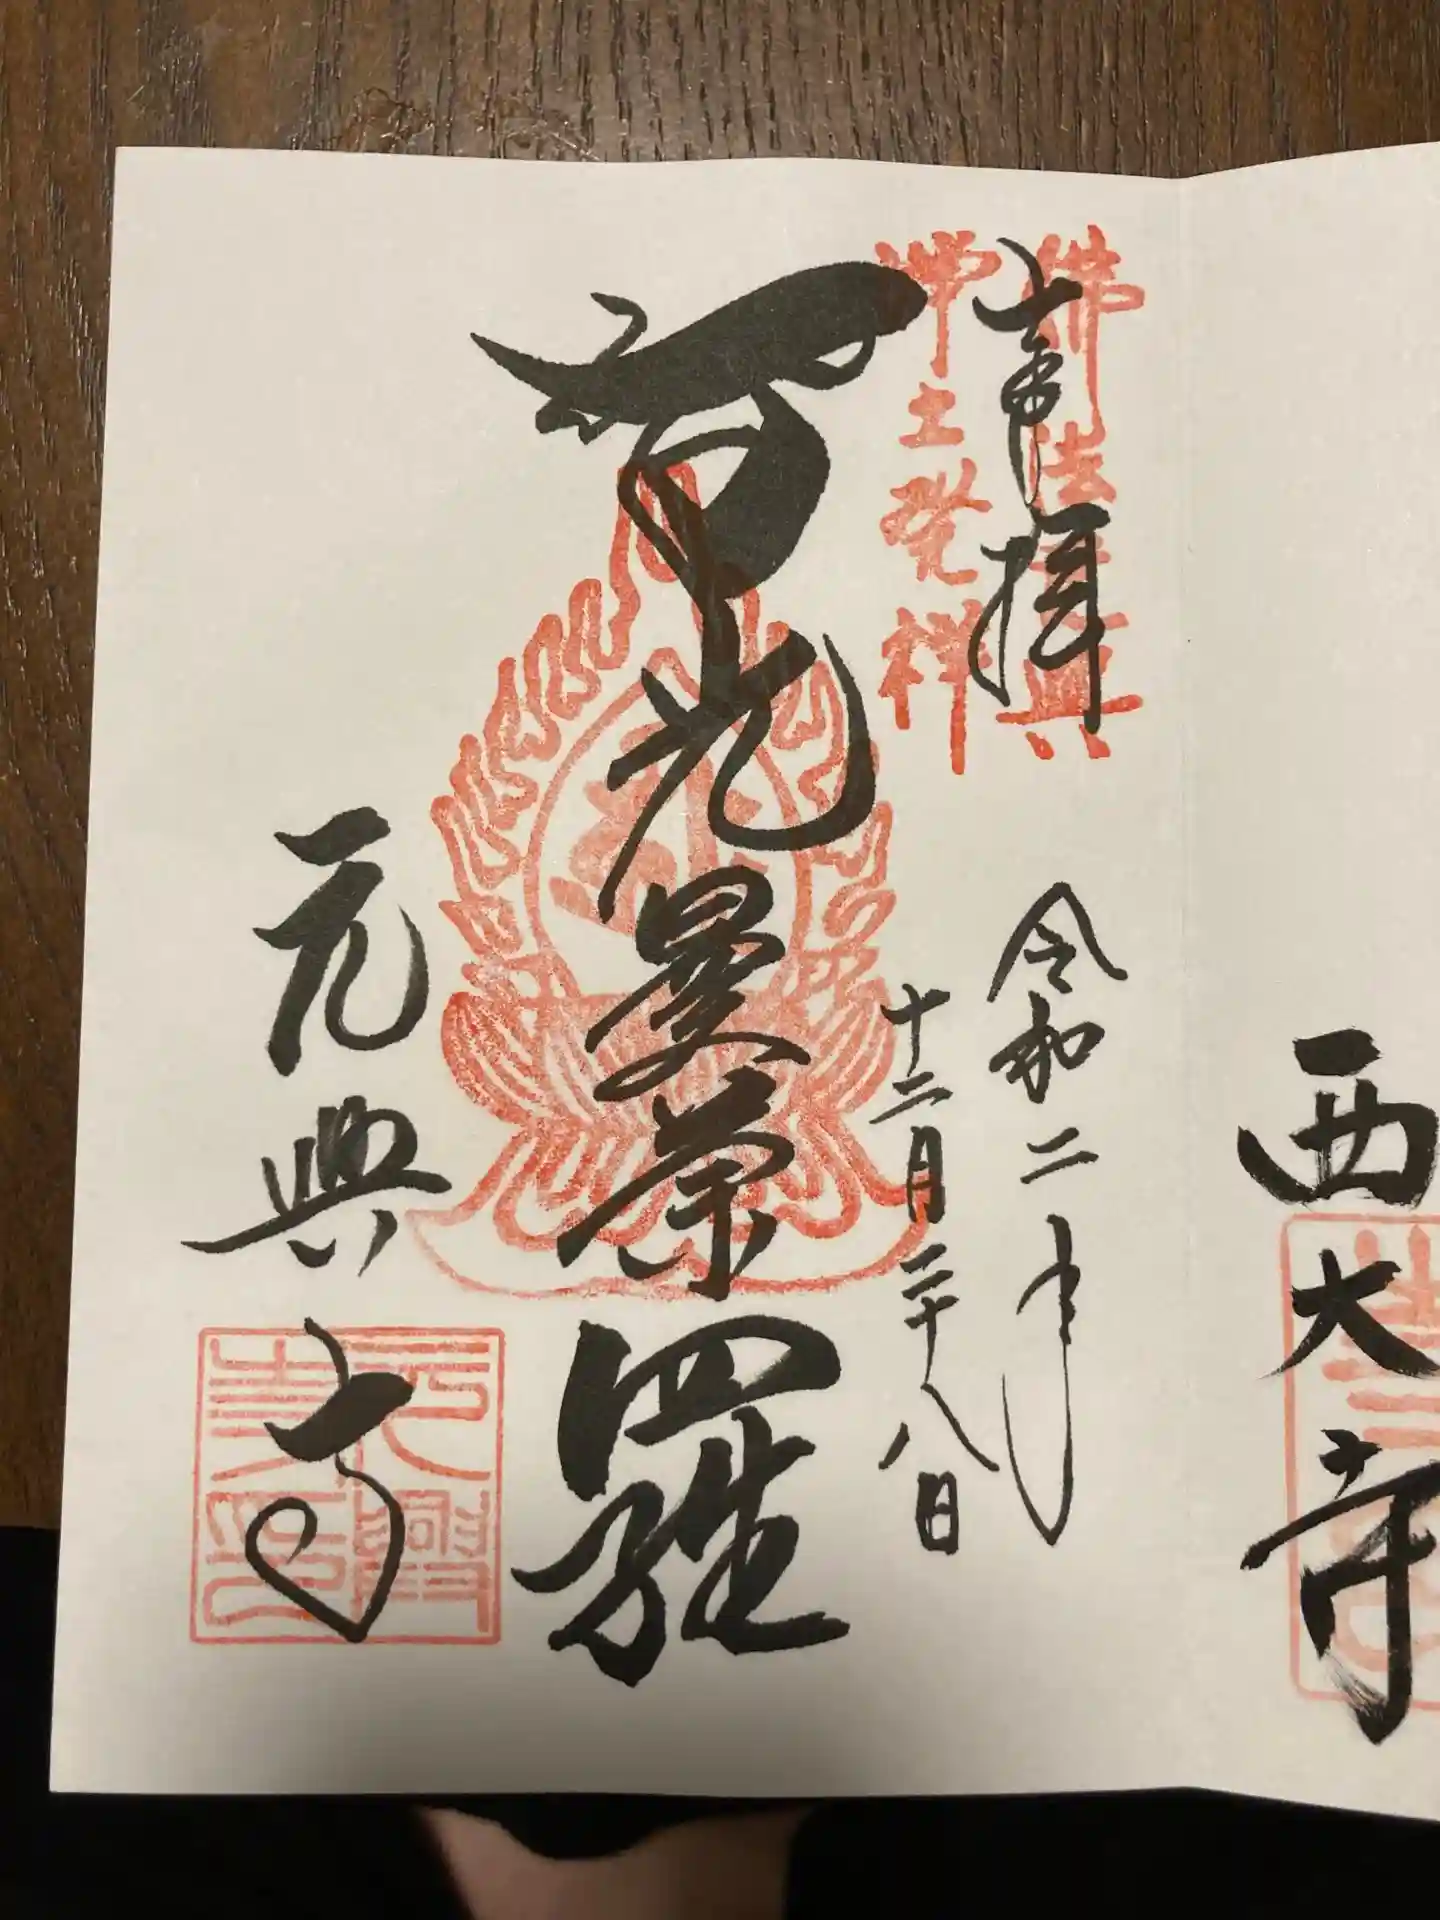 西大寺
佛法元興
浄土発祥
奉拝
令和二年
十二月二十八日
智光曼荼羅
元興寺
元興寺印